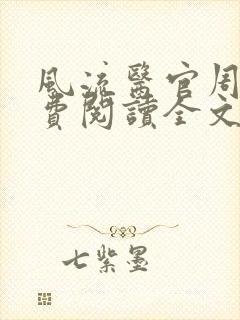 風流醫官周
費閱讀全文
七紫墨